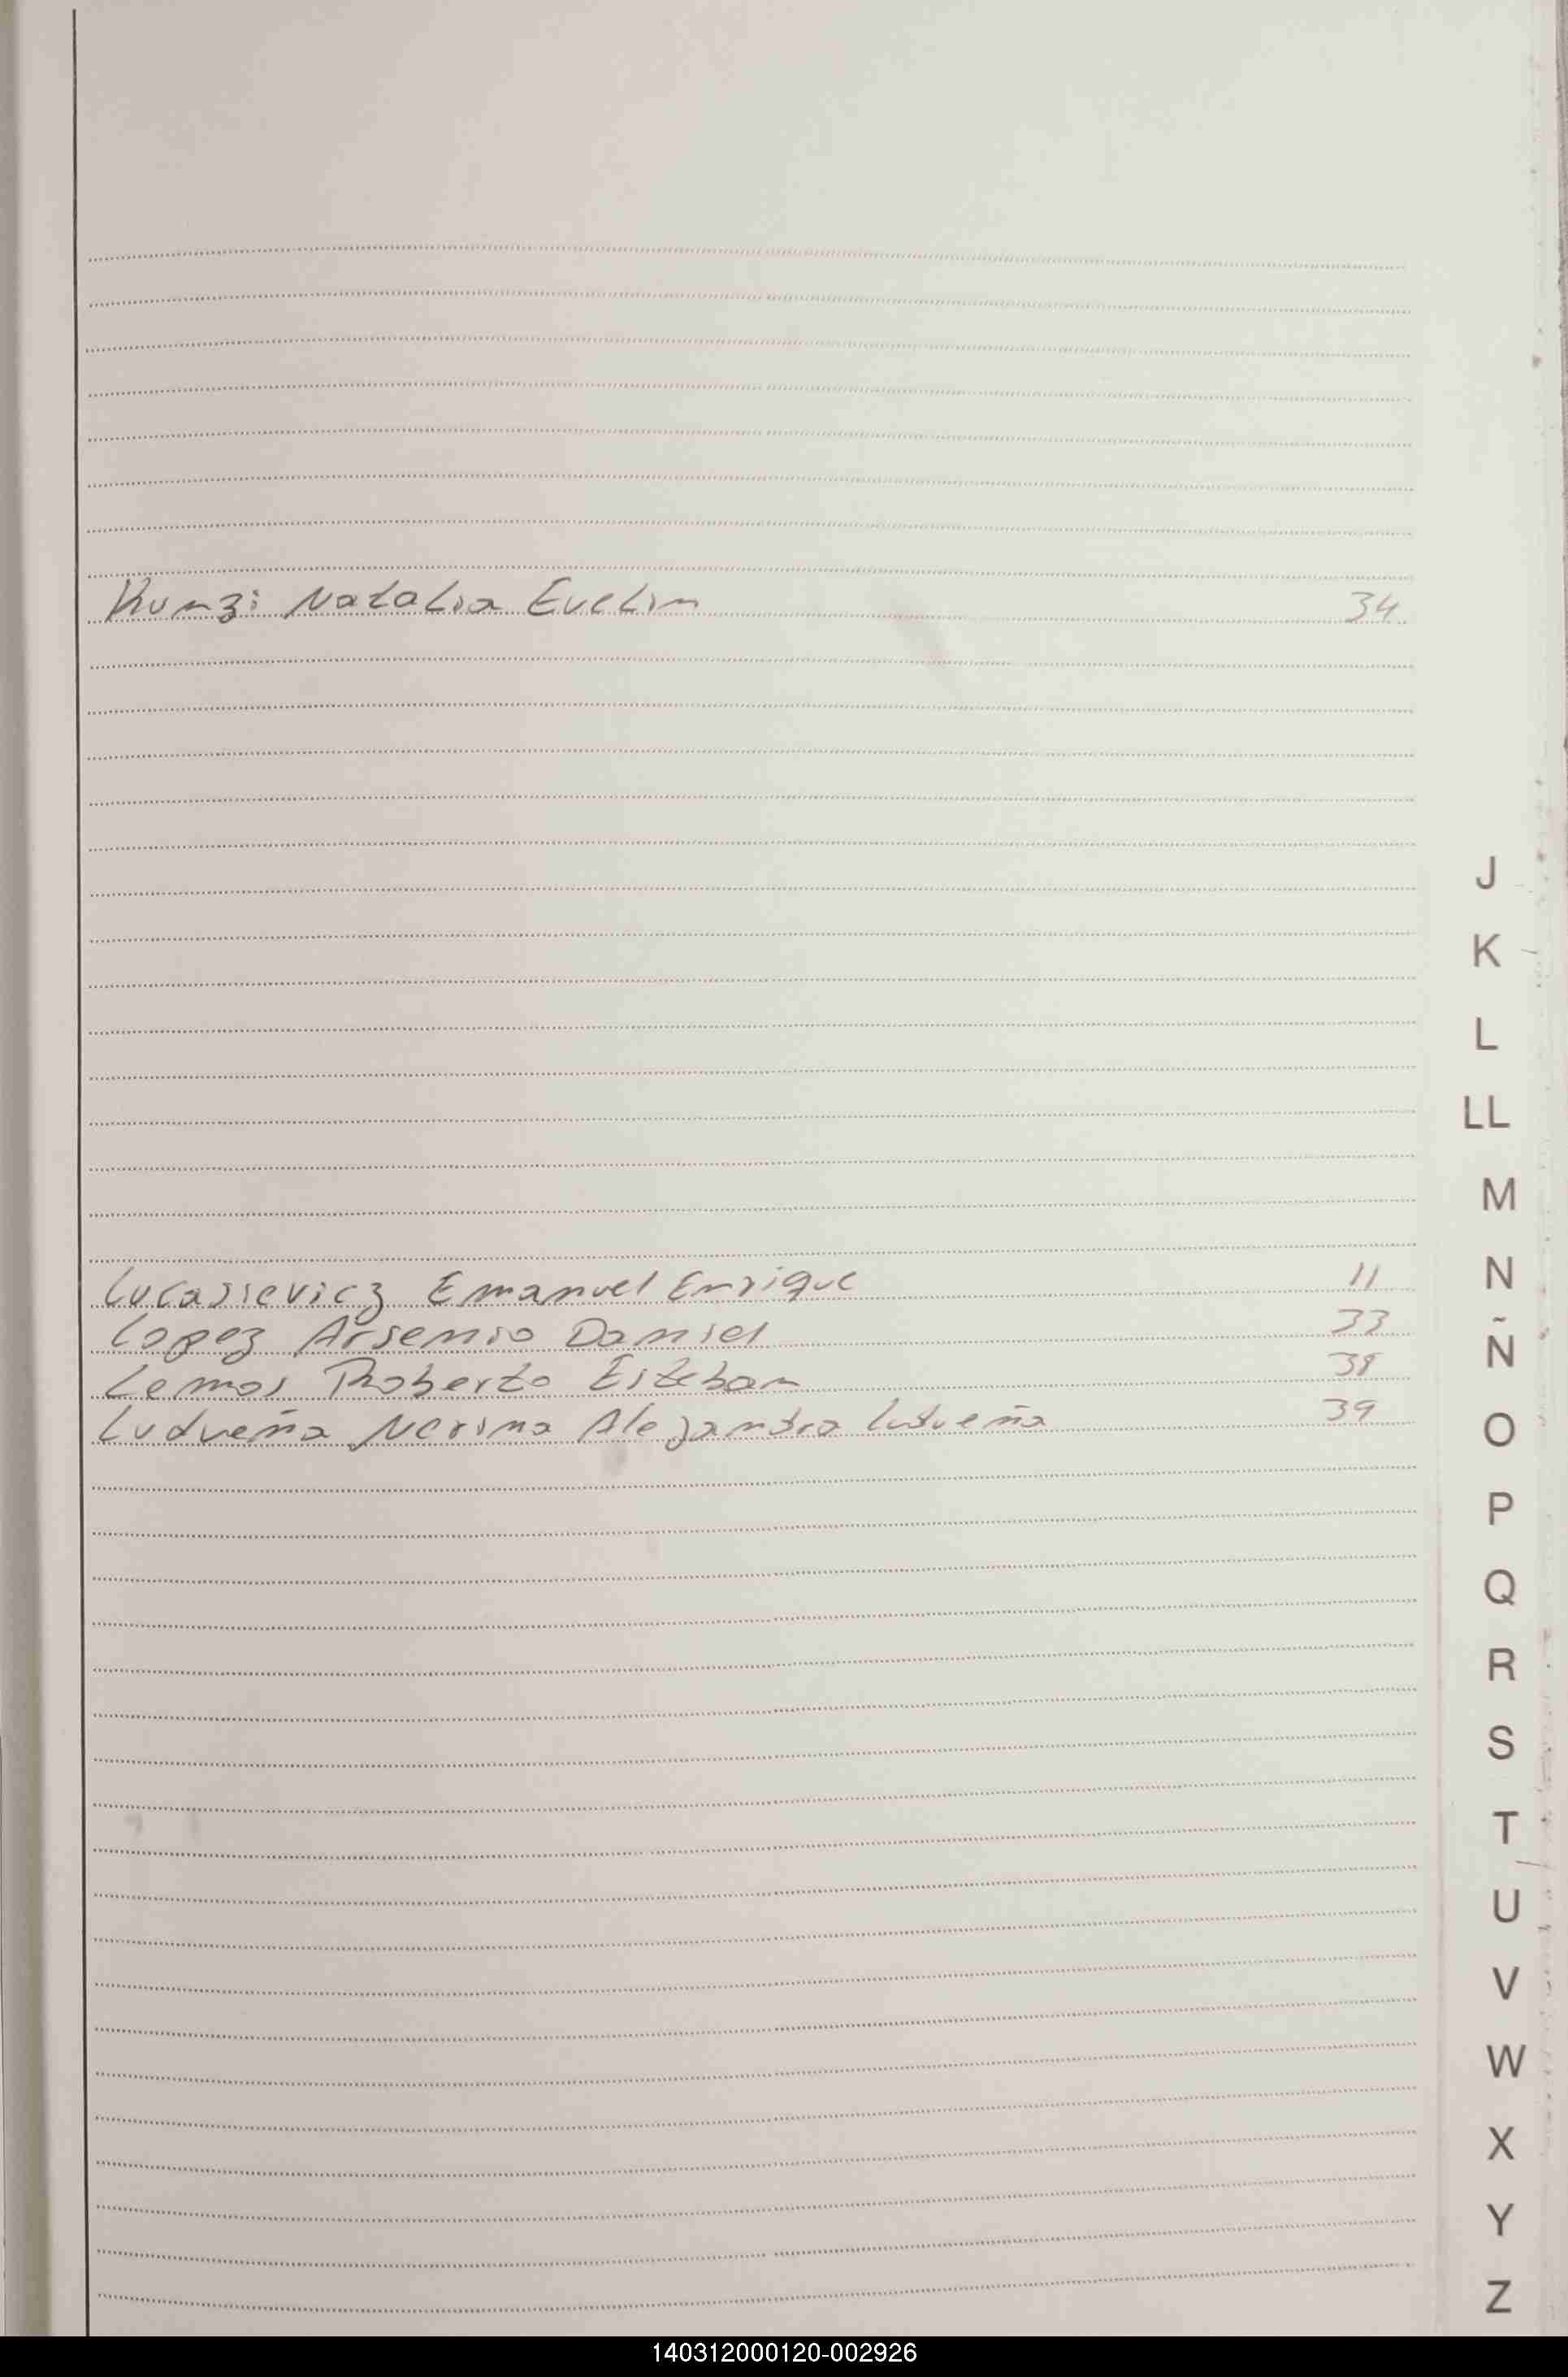 Kunzi Natalia Evelin 34
J
K
L
LL
M
N
Lucasievicz Emanuel Enrique 11
Lopez Arsenio Daniel 33
Ñ
Lemos Roberto Esteban 38
Ludueña Nerina Alejandra Ludueña 39
O
P
Q
R
S
T
U
V
W
X
Y
Z
140312000120-002926